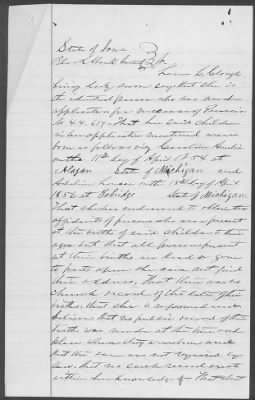 State of Iowa
County } SS
being duly sworn says that she is
the identical person who has made
application for increase of Pension
No 44.617. That her said children
in her application mentioned were
born as follows viz Caroline
on the 11th day of April 1854 at
State of Michigan and
on the 18th day of April
1856 at State of Michigan
That she has endeavored to obtain the
affidavits of persons who were present
at the birth of said children to their
ages but that all persons present
at their births are dead or gone
to parts upon she can not find
their address, that there was no
church record of the date of their
births, that she is informed and
believes that no public record of their
births was made at the time and
place shown
that the same are not required by
law. that no such record exists
within her knowledge. That